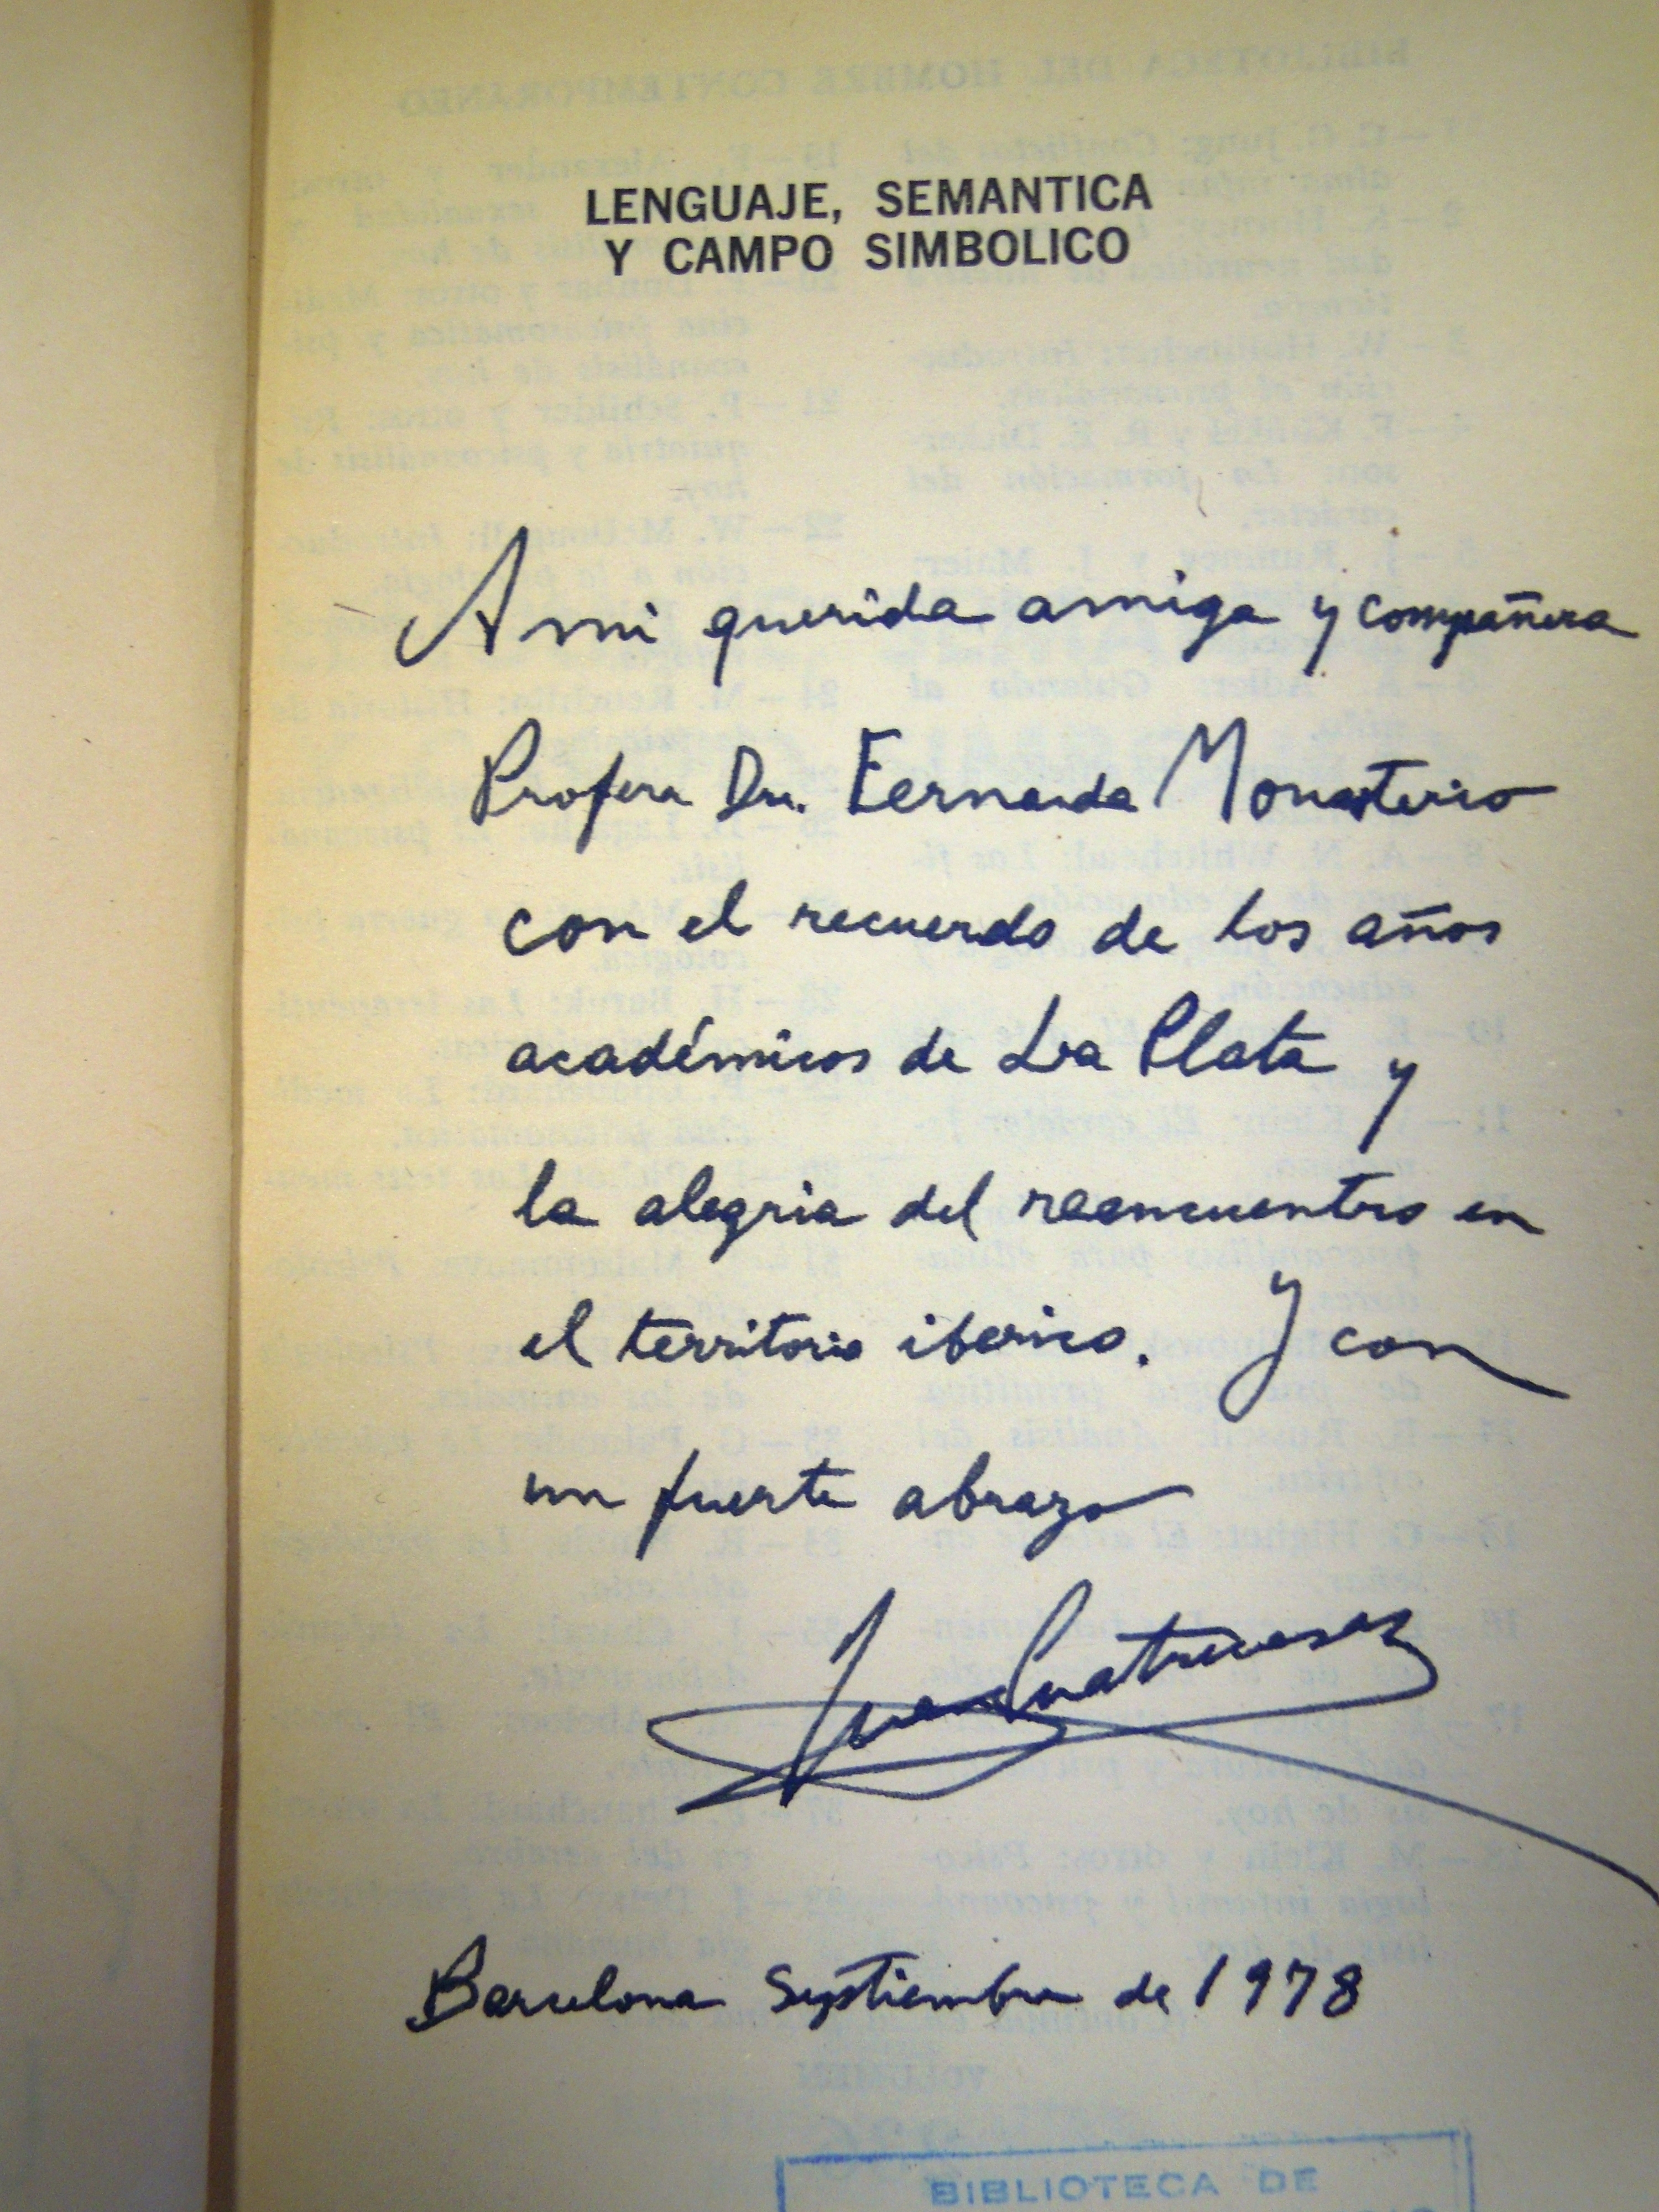 LENGUAJE, SEMANTICA
Y CAMPO SIMBOLICO
A mi querida amiga y compañera
Profera Dra. Fernanda Monasterio
con el recuerdo de los años
académicos de La Plata y
la alegria del reencuentro en
el territorio iberico. Y con
un fuerte abrazo
Juan Cuatrecasas
Barcelona Septiembre de 1978
BIBLIOTECA DE